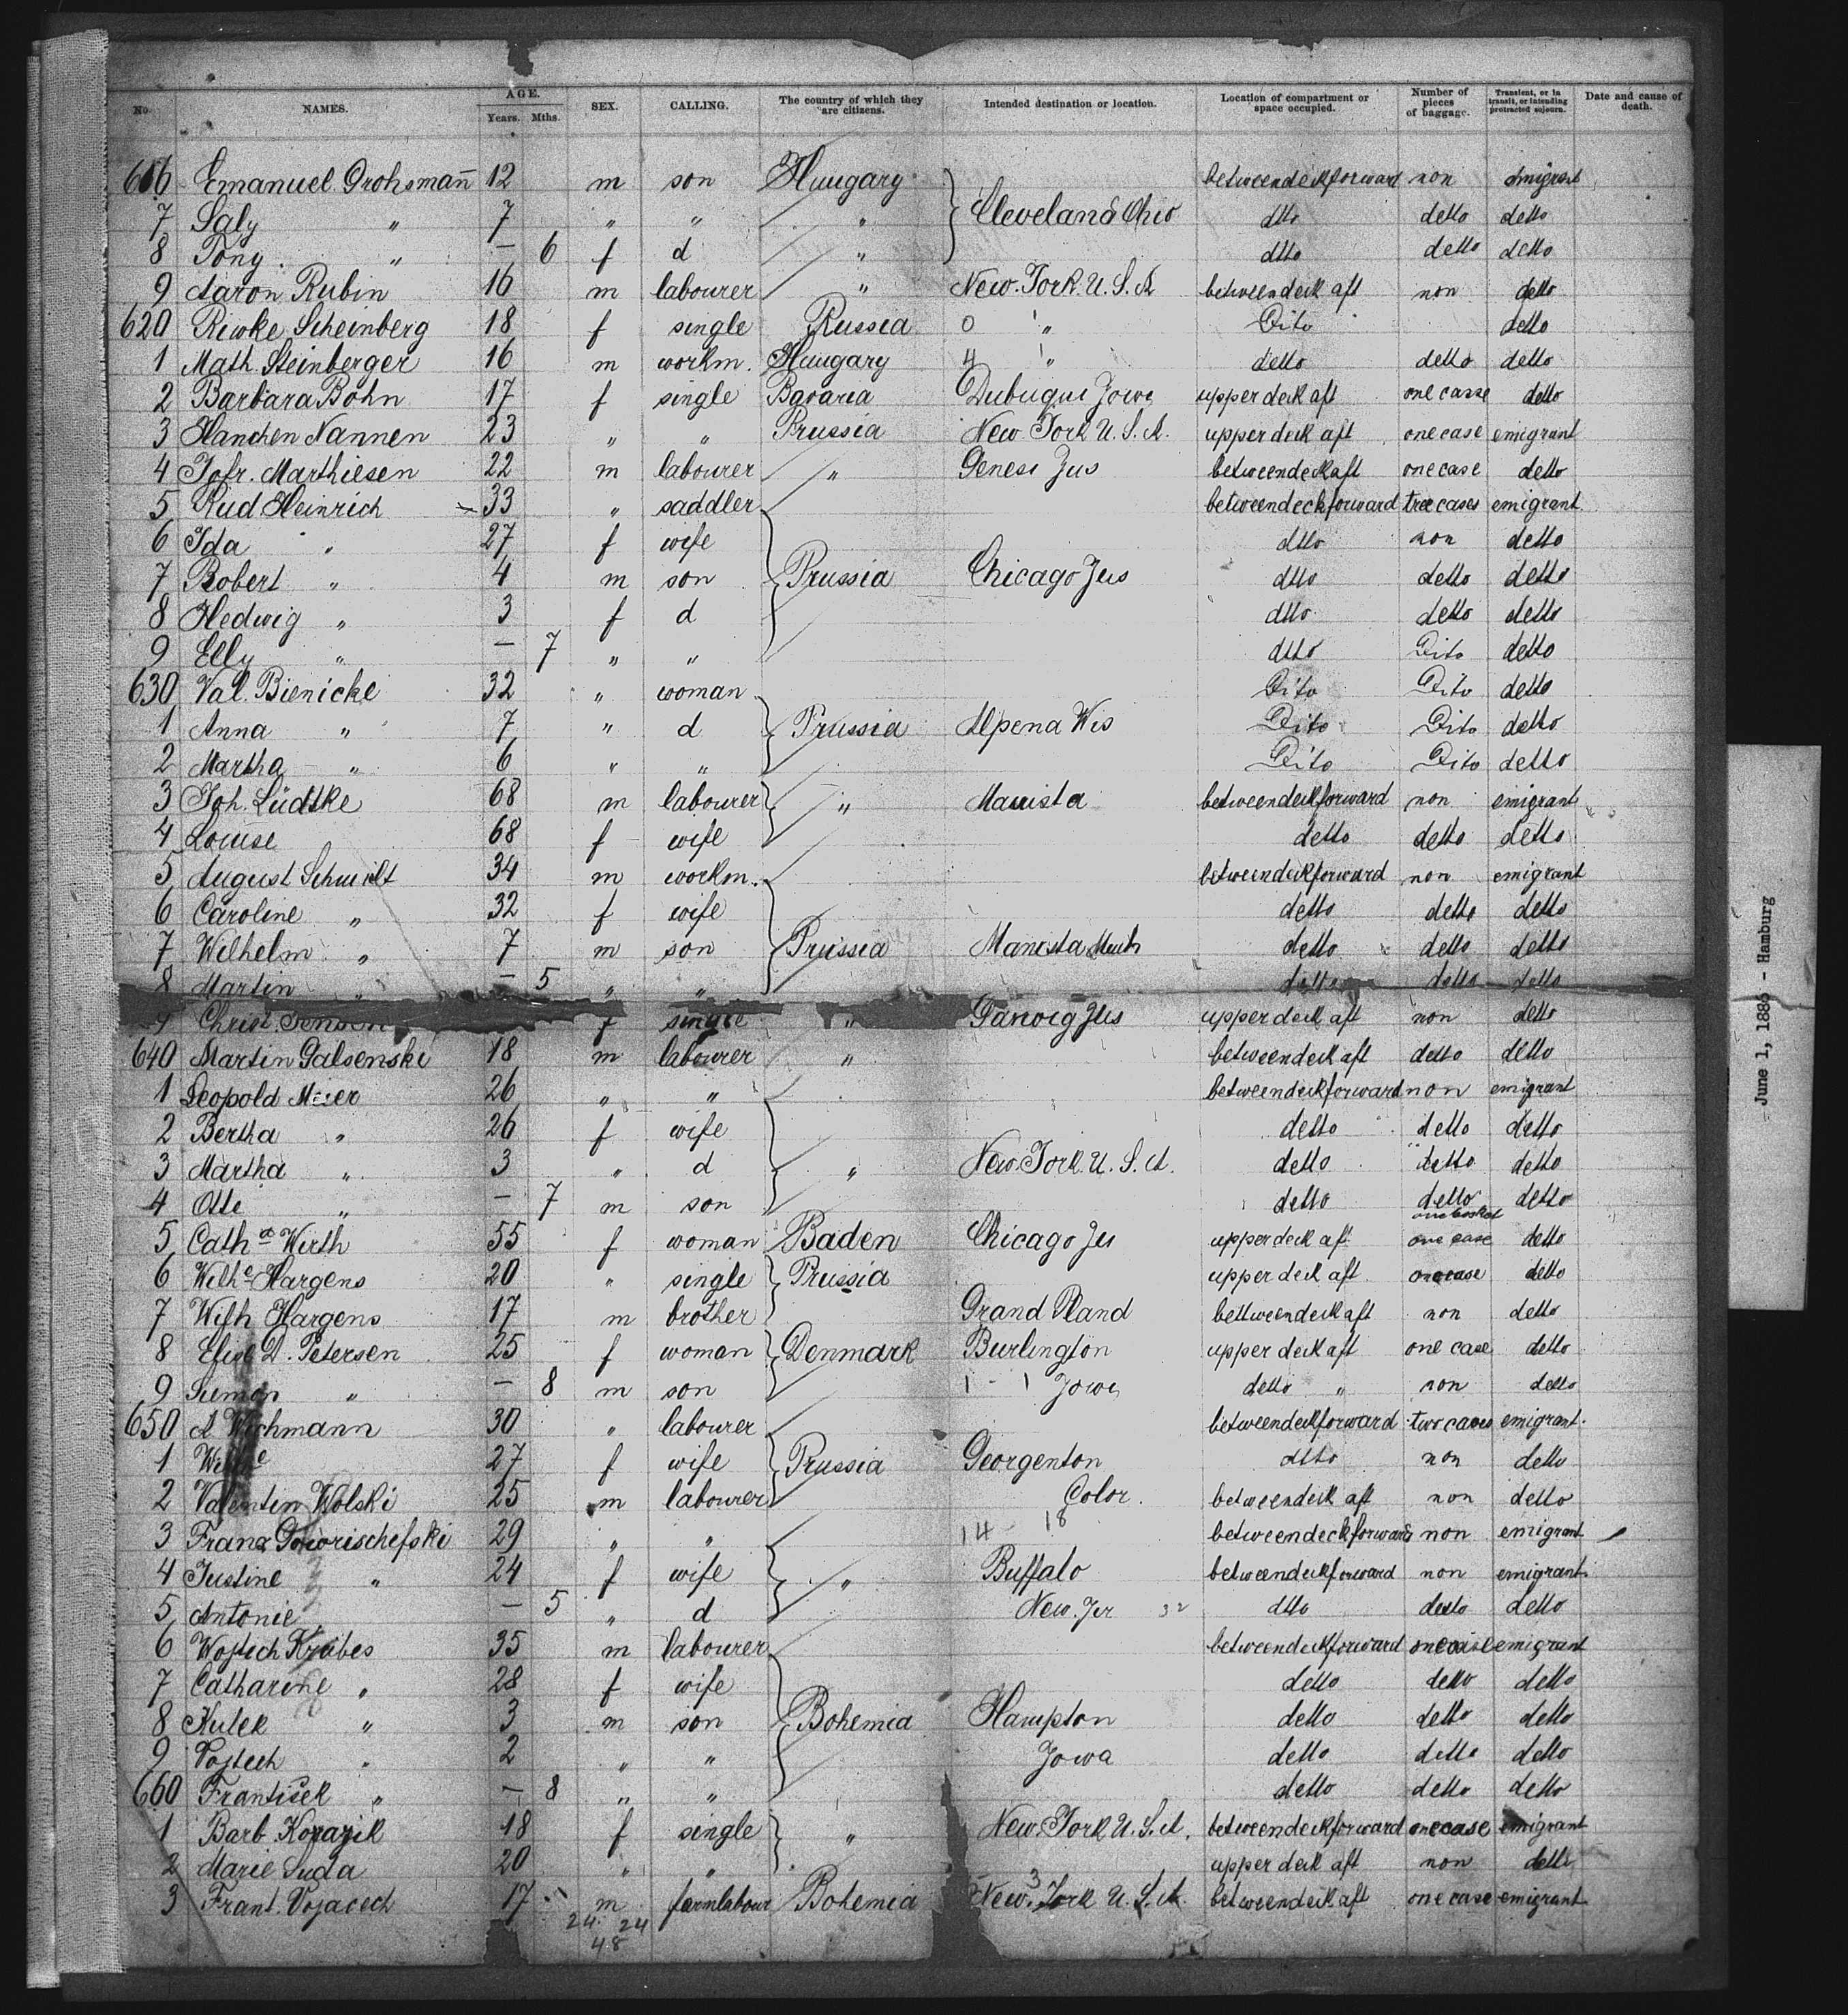 No. NAMES. AGE. Years. Mths. SEX. CALLING. The country of which they are citizens. Intended destination or location. Location of compartment or space occupied. Number of pieces of baggage. Transient, or in transit, or intending protracted sojourn. Date and cause of death.
616 Emanuel Grohsmann 12 m son Hungary betweendeckforward non emigrant
7 Saly " 7 " " " Cleveland Ohio dtto detto detto
8 Tony " – 6 f d " dtto detto detto
9 Aaron Rubin 16 m labourer " New. York. U. S. A betweendeck aft non detto
620 Riwke Scheinberg 18 f single Russia 0 " Dito detto
1 Math. Steinberger 16 m workm. Hungary 4 " detto detto detto
2 Barbara Bohn 17 f single Bavaria Dubuque Jowa upper deck aft one casse detto
3 Hanchen Nannen 23 " " Prussia New York U. S. A. upper deck aft one case emigrant
4 Jofr. Marthiesen 22 m labourer " Genese Jus betweendeck aft one case detto
5 Rud Heinrich 33 " saddler betweendeckforward tree cases emigrant
6 Ida " 27 f wife dtto non detto
7 Robert " 4 m son Prussia Chicago Jus dtto detto detto
8 Hedwig " 3 f d dtto detto detto
9 Elly " – 7 " " dtto Dito detto
630 Val. Bienicke 32 " woman Dito Dito detto
1 Anna " 7 " d Prussia Alpena Wis Dito Dito detto
2 Martha " 6 " " Dito Dito detto
3 Joh. Lüdtke 68 m labourer " Manista betweendeckforward non emigrant
4 Louise 68 f wife detto detto detto
5 August Schmidt 34 m workm. betweendeckforward non emigrant
6 Caroline " 32 f wife detto detto detto
7 Wilhelm " 7 m son Prussia Manesta Mich detto detto detto
8 Martin " – 5 " " detto detto detto
9 Christ. Jensen f single " upper deck aft non detto
640 Martin Galsenski 18 m labourer " betweendeck aft detto detto
1 Leopold Meier 26 " " betweendeckforward non emigrant
2 Bertha " 26 f wife detto detto detto
3 Martha " 3 " d " New. York. U. S. A. detto detto detto
4 Otto " – 7 m son detto detto detto
5 Cath a Werth 55 f woman Baden Chicago Jls upper deck aft one basket one case detto
6 Wilhe Hargens 20 " single Prussia upper deck aft one case detto
7 Wilh Hargens 17 m brother Grand Iland bettweendeck aft non detto
8 Elise D. Petersen 25 f woman Denmark Burlington upper deck aft one case detto
9 Simon " – 8 m son Jowa detto " non detto
650 A Wichmann 30 " labourer betweendeckforward two cases emigrant.
1 27 f wife Prussia Georgenton dtto non detto
2 Valentin Wolski 25 m labourer Color. betweendeck aft non detto
3 Franz Goworischefski 29 " " 14 - 18 betweendeckforward non emigrant
4 Justine " 24 f wife " Buffalo betweendeckforward non emigrant
5 Antonie – 5 " d New. Jer 32 dtto detto detto
6 Wojtech Krabes 35 m labourer betweendeckforward one case emigrant
7 Catharine " 28 f wife detto detto detto
8 Kulek " 3 m son Bohemia Hampton detto detto detto
9 Vojtech " 2 " " Jowa detto detto detto
660 Frantisek " – 8 " " detto detto detto
1 Barb. Korazik 18 f single " New. York U. S. A. betweendeckforward one case emigrant
2 Marie Suda 20 " " upper deck aft non detto
3 Frant. Vojacech 17 m farmlabour Bohemia New. York U. S. A. betweendeck aft one case emigrant
24 24
48
June 1, 1886 - Hamburg